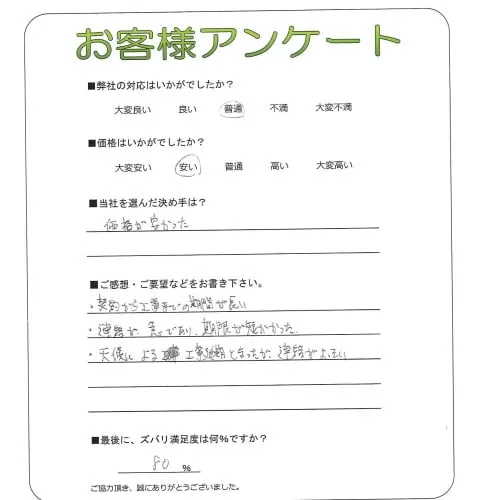 お客様アンケート
■弊社の対応はいかがでしたか？
大変良い 良い 普通 不満 大変不満
■価格はいかがでしたか？
大変安い 安い 普通 高い 大変高い
■当社を選んだ決め手は？
価格が安かった
■ご感想・ご要望などをお書き下さい。
・契約から工事までの期間が長い
・連絡が急であり、期限が短かかった
・天候による 工事延期となったが、連絡がよい
■最後に、ズバリ満足度は何%ですか？
80 %
ご協力頂き、誠にありがとうございました。